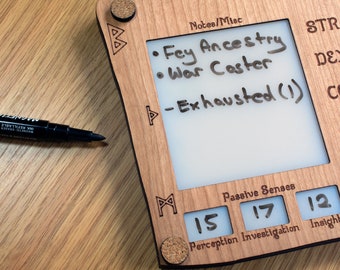 Notes/Misc
• Fey Ancestry
• War Caster
- Exhausted (1)
STR
DE
CO
Passive Senses
15 17 12
Perception Investigation Insight